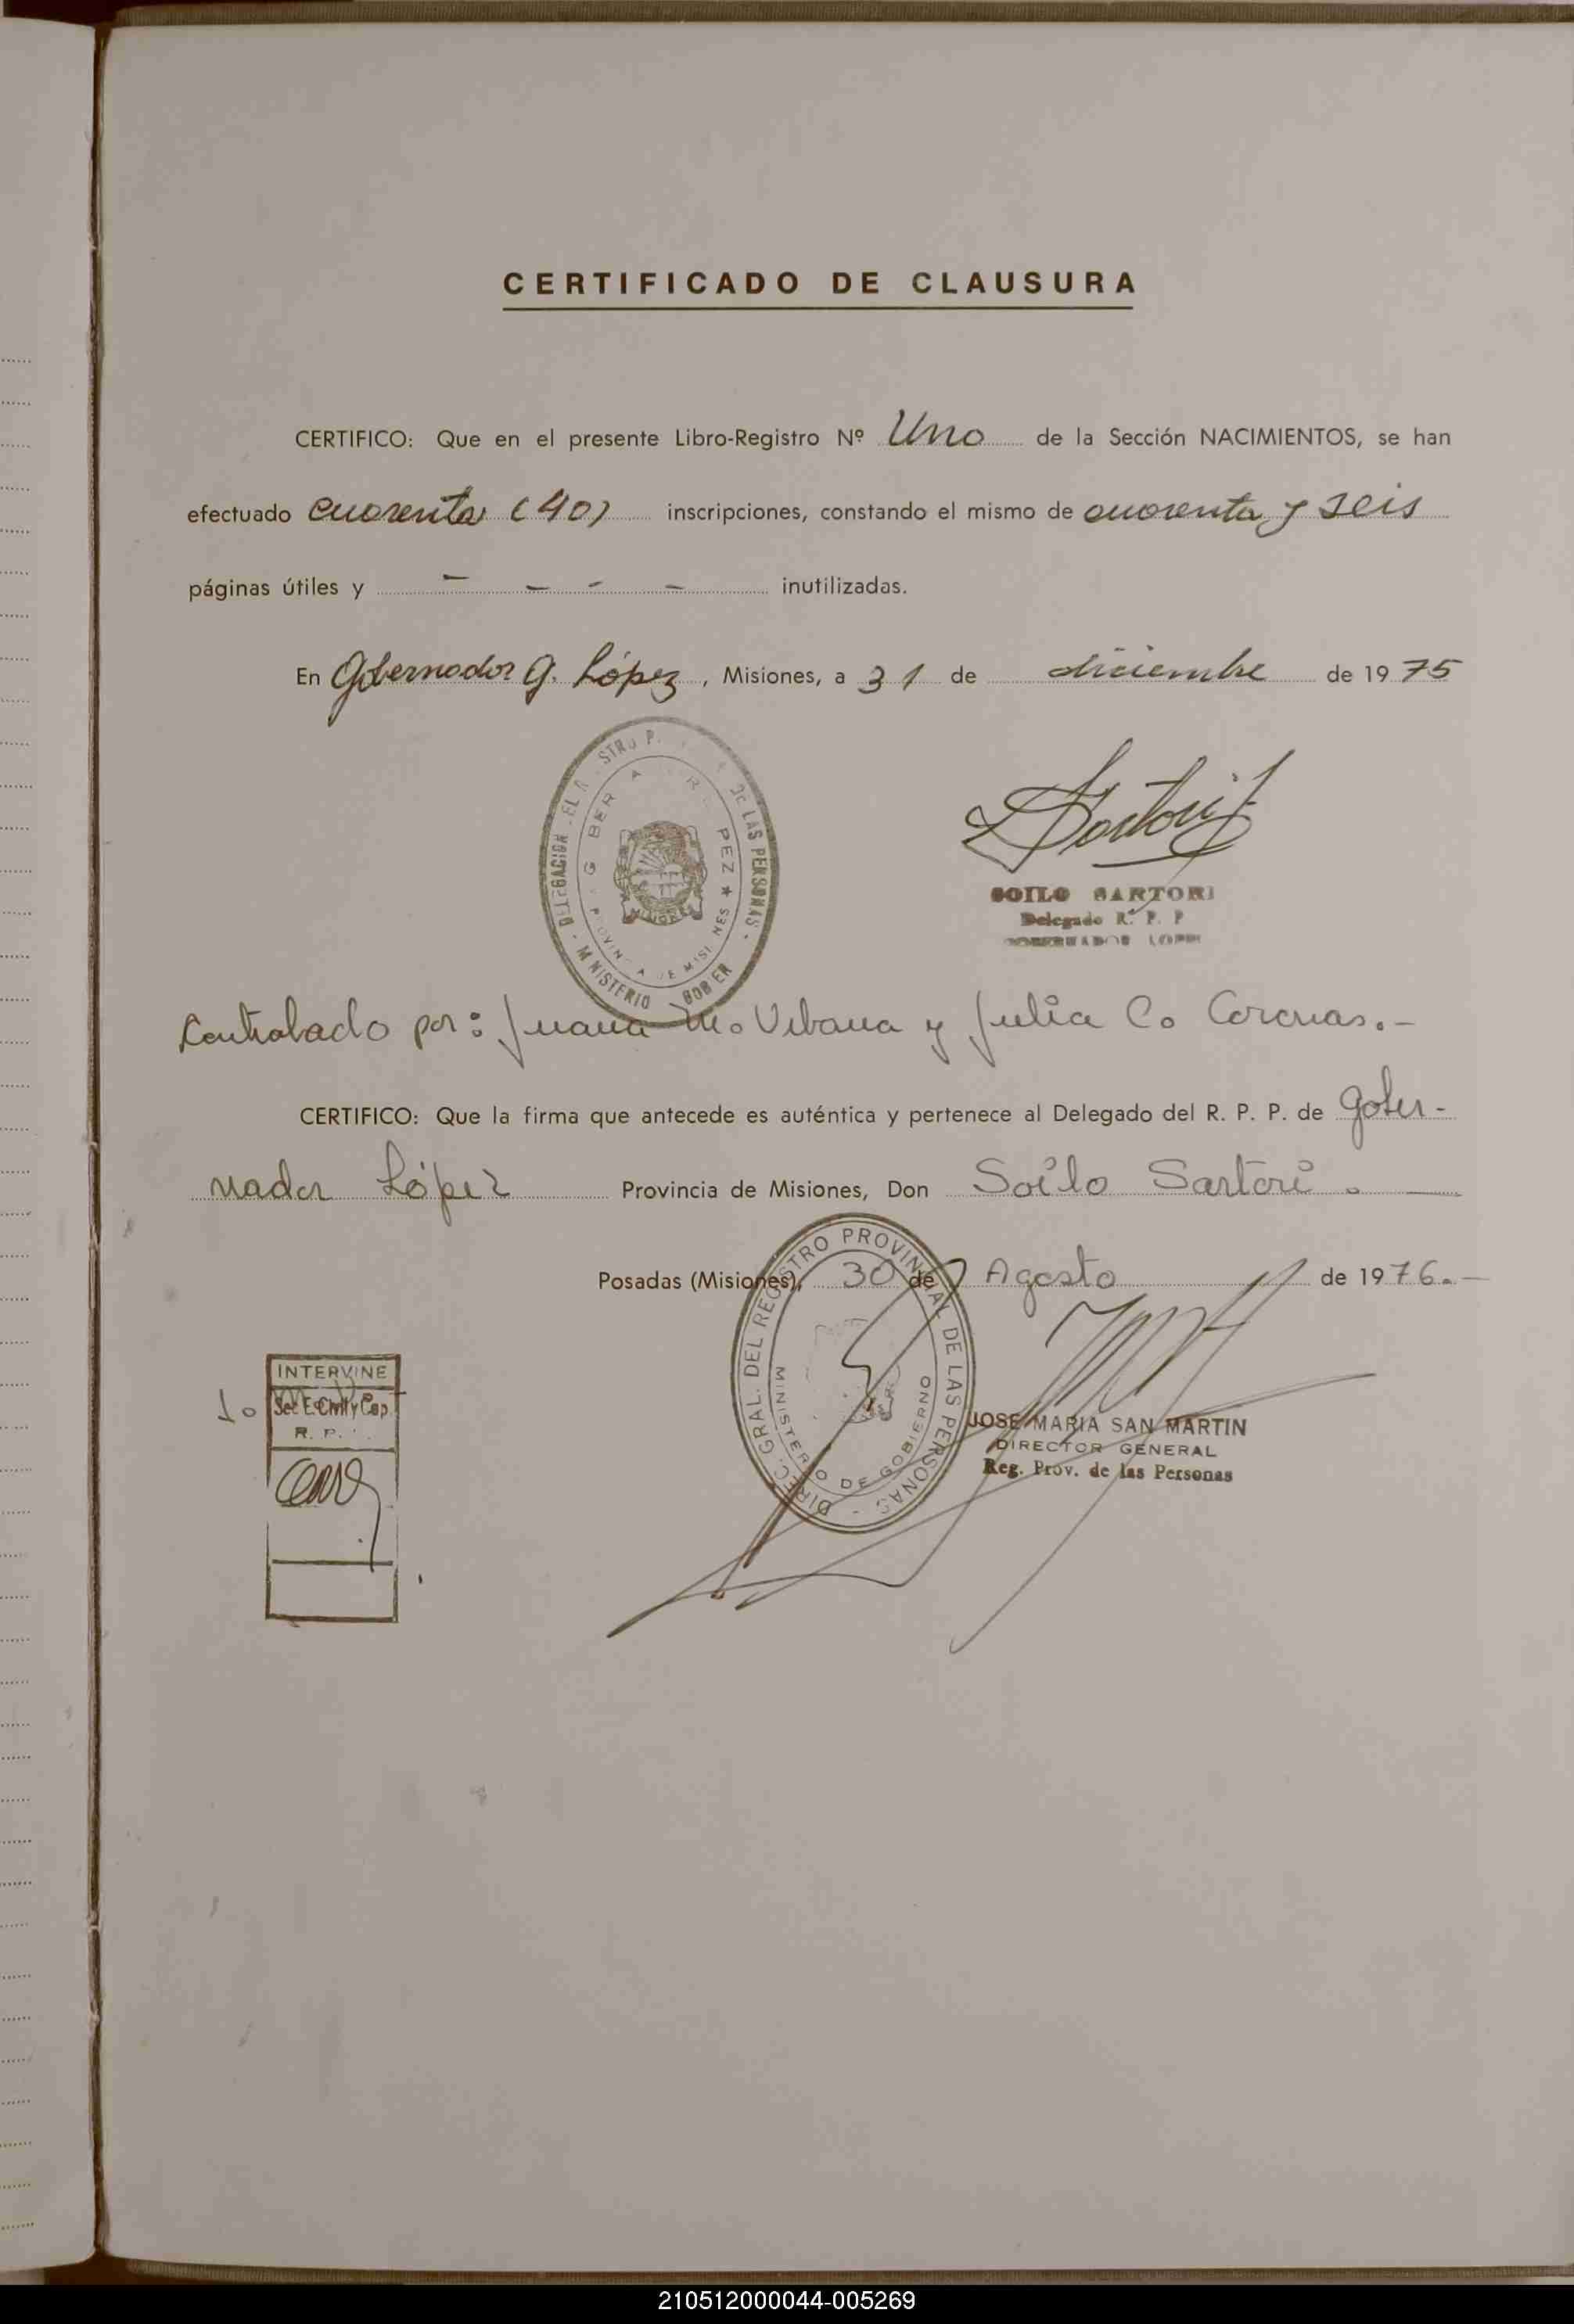 CERTIFICADO DE CLAUSURA
CERTIFICO: Que en el presente Libro-Registro Nº Uno de la Sección NACIMIENTOS, se han
efectuado cuarenta (40) inscripciones, constando el mismo de cuarenta y seis
páginas útiles y - - - - inutilizadas.
En Gobernador G. López, Misiones, a 31 de diciembre de 1975
Sartori
SOILO SARTORI
Delegado R. P. P
GOBERNADOR LOPEZ
Controlado por: Juana M. Urbana y Julia C. Coronas.-
CERTIFICO: Que la firma que antecede es auténtica y pertenece al Delegado del R. P. P. de Gober-
nador López Provincia de Misiones, Don Soilo Sartori.
Posadas (Misiones), 30 de Agosto de 1976.-
DIREC. GRAL. DEL REGISTRO PROVINCIAL DE LAS PERSONAS -
MINISTERIO DE GOBIERNO
INTERVINE
Sec E. Civil y Cap.
R. P.
JOSE MARIA SAN MARTIN
DIRECTOR GENERAL
Reg. Prov. de las Personas
210512000044-005269